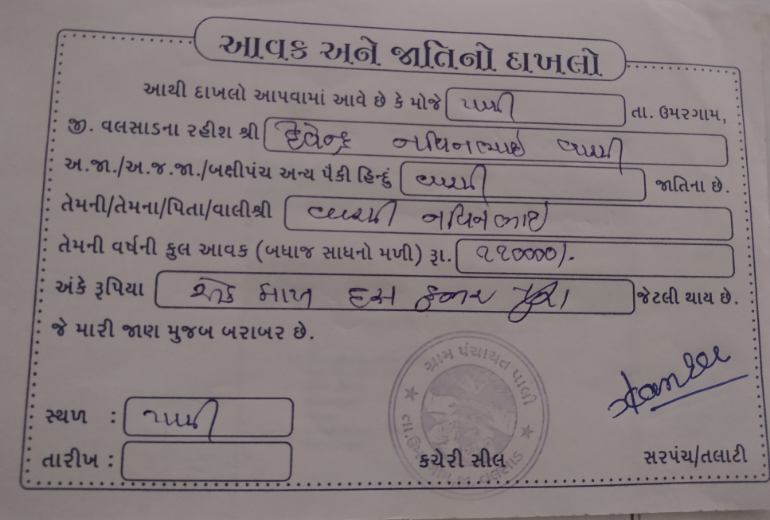 આવક અને જાતિનો દાખલો
આથી દાખલો આપવામાં આવે છે કે મોજે પાલી તા. ઉમરગામ,
જી. વલસાડના રહીશ શ્રી દેવેન્દ્ર નવિનભાઇ
અ.જા./અ.જ.જા./બક્ષીપંચ અન્ય પૈકી હિન્દું જાતિના છે.
તેમની/તેમના/પિતા/વાલીશ્રી નવિનભાઇ
તેમની વર્ષની કુલ આવક (બધાજ સાધનો મળી) રૂા. ૧૧૦૦૦૦/-
અંકે રૂપિયા એક લાખ દસ હજાર પુરા જેટલી થાય છે.
જે મારી જાણ મુજબ બરાબર છે.
ગ્રામ પંચાયત પાલી
સ્થળ : પાલી
તારીખ :
કચેરી સીલ
સરપંચ/તલાટી